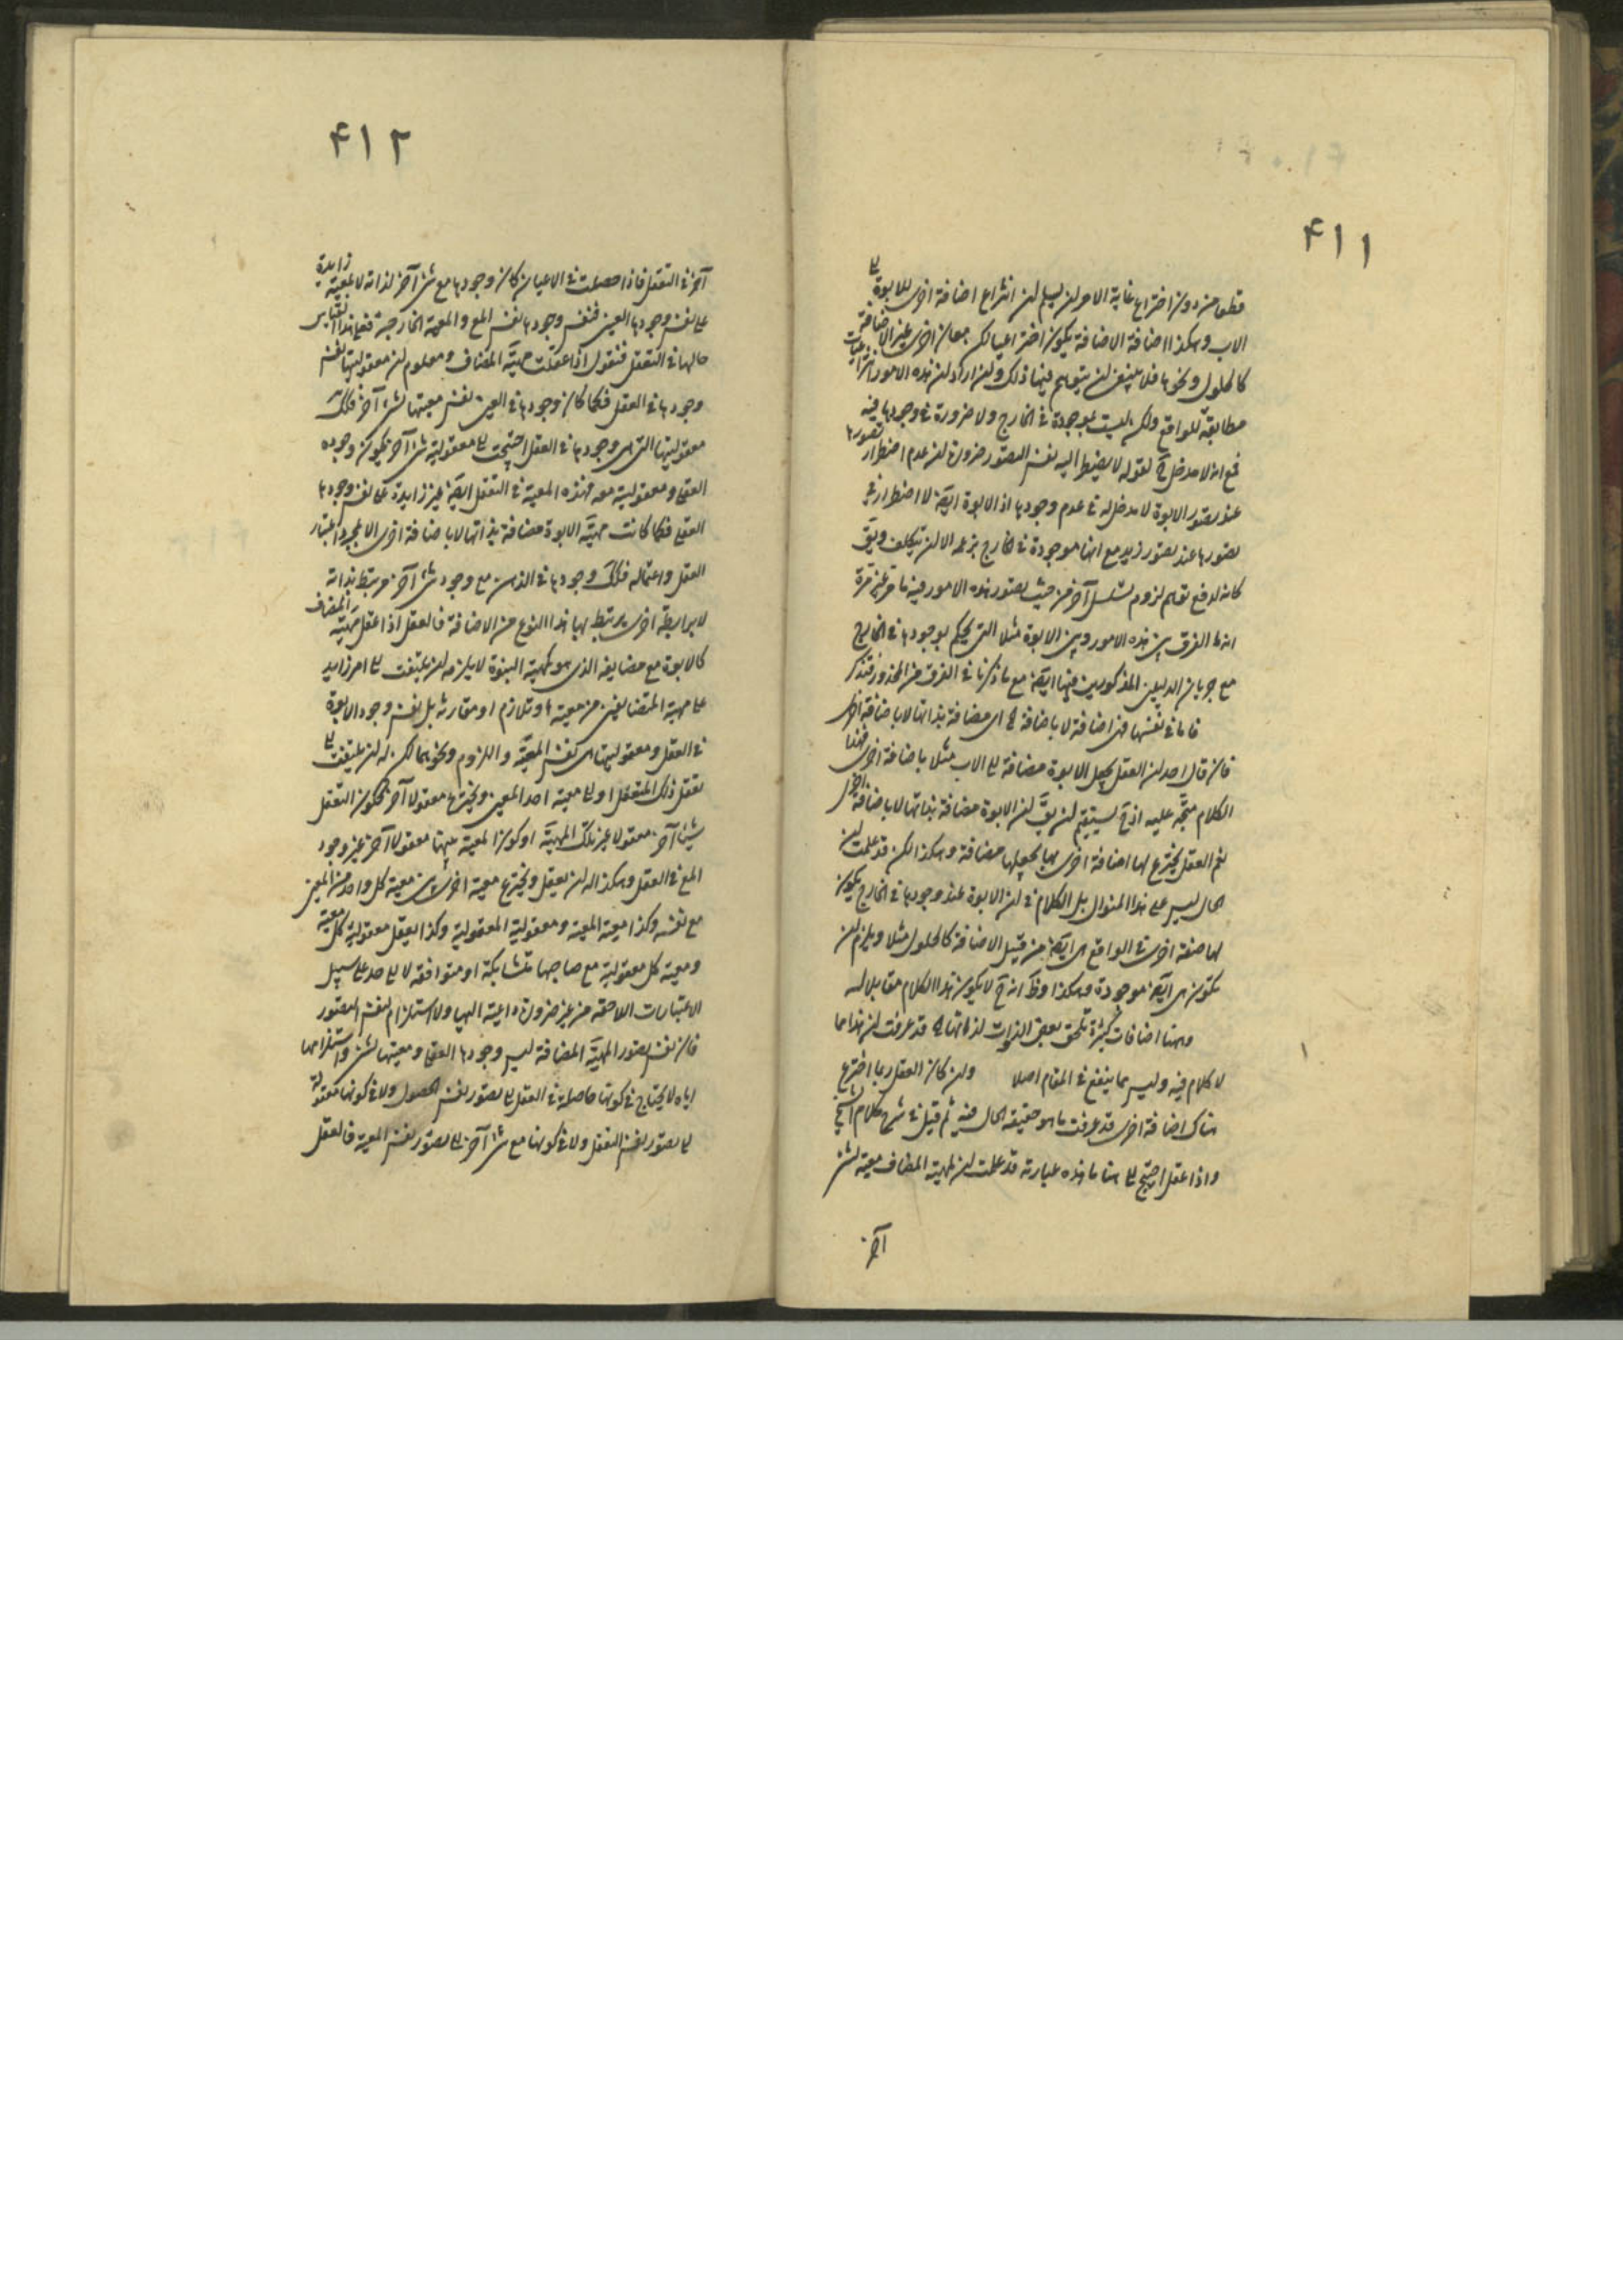 ۴۱۱
قطعا من دون اختراع غاية الامر ان يسلم ان انتزاع اضافة اخرى للابوة الى
الاب وهكذا اضافة الاضافة يكون اختراعيا لكن معان اخرى غير الاضافة
كالحلول ونحوها فلا ينبغى ان يتوهم فيها ذلك وان اراد ان هذه الامور انتزاعيات
مطابقة للواقع ولكن ليست بموجودة فى الخارج ولا ضرورة فى وجودها فيه
فمع انه لا مدخل ح لقوله لا يضطر اليه نفس التصور ضرورة ان عدم اضطرار تصورها
عند تصور الابوة لا مدخل له فى عدم وجودها اذ الابوة ايضا لا اضطرار فى
تصورها عند تصور زيد مع انها موجودة فى الخارج بزعمه الا ان يتكلف ويق
كانه لدفع توهم لزوم تسلسل آخر من حيث تصور هذه الامور فيه ما مر غير مرة
انه ما الفرق بين هذه الامور وبين الابوة مثلا التى يحكم بوجودها فى الخارج
مع جريان الدليلين المذكورين فيها ايضا مع ما ذكرنا فى الفرق من المحذور فتذكر
فاما فى نفسها فهى اضافة لا باضافة اى مضافة بذاتها لا باضافة اخرى
فان قال احد ان العقل يجعل الابوة مضافة الى الاب مثلا باضافة اخرى فهذا
الكلام متجه عليه اذ ح يستقيم ان يق ان الابوة مضافة بذاتها لا باضافة اخرى
ثم العقل يخترع لها اضافة اخرى بها يجعلها مضافة وهكذا لكن قد علمت ان
الحال ليس على هذا المنوال بل الكلام فى ان الابوة عند وجودها فى الخارج يكون
لها صفة اخرى فى الواقع هى ايضا من قبيل الاضافة كالحلول مثلا ويلزم ان
تكون هى ايضا موجودة وهكذا وظ انه ح لا يكون هذا الكلام مقابلا له
وههنا اضافات كثيرة تلحق بعض الذوات لذواتها قد عرفت ان هذا مما
لا كلام فيه وليس مما ينفع فى المقام اصلا وان كان العقل ربما اخترع
هناك اضافة اخرى قد عرفت ما هو حقيقة الحال فيه ثم قيل فى شرح كلام الشيخ
واذا عقل احتيج الى هنا ما هذه عبارته قد علمت ان لمهية المضاف معية لشئ
آخر
۴۱۲
آخر فى التعقل فاذا حصلت فى الاعيان كان وجودها مع شئ آخر لذاته لا لمعية زايدة
على نفس وجودها العينى فنفس وجودها نفس المع والمعية الخارجية فعلى هذا القياس
حالها فى التعقل فنقول اذا عقلت مهية المضاف ومعلوم ان معقوليتها نفس
وجودها فى العقل فكما كان وجودها فى العين نفس معيتها لشئ آخر فكك
معقوليتها التى هى وجودها فى العقل احتيجت الى معقولية شئ آخر فيكون وجوده
العقلى ومعقوليته معه فهذه المعية فى التعقل ايضا غير زايدة على نفس وجودها
العقلى فكما كانت مهية الابوة مضافة بذاتها لا باضافة اخرى الا بمجرد اعتبار
العقل واعتماله فكك وجودها فى الذهن مع وجود شئ آخر مرتبط بذاته
لا برابطة اخرى يرتبط بها هذا النوع من الاضافة فالعقل اذا عقل مهية المضاف
كالابوة مع مضايفه الذى هو كمهية البنوة لا يلزمه ان يلتفت الى امر زايد
على مهية المتضايفين من معية او تلازم او مقارنة بل نفس وجود الابوة
فى العقل ومعقوليتها هى نفس المعية واللزوم ونحوهما لكن له ان يلتفت الى
تعقل ذلك المتعقل اولى معية احد المعين ويخترعها معقولا آخر فيكون التعقل
شيئا آخر معقولا غير تلك المهية او كون المعية بينهما معقولا آخر غير وجود
المع فى العقل وهكذا له ان يعقل ويخترع معية اخرى بين معية كل واحد من المعين
مع نفسه وكذا معية المعية ومعقولية المعقولية وكذا يعقل معقولية كل معية
ومعية كل معقولية مع صاحبها متشابكة او متوافقة لا الى حد على سبيل
الاعتبارات اللاحقة من غير ضرورة داعية اليها ولا استلزام لنفس التصور
فان نفس تصور المهية المضافة ليس وجودها العقلى ومعيتها لشئ واستلزامها
اياه لا يحتاج فى كونها حاصلة فى العقل الى تصور نفس الحصول ولا فى كونها متعقلة
الى تصور نفس التعقل ولا فى كونها مع شئ آخر الى تصور نفس المعية فالعقل